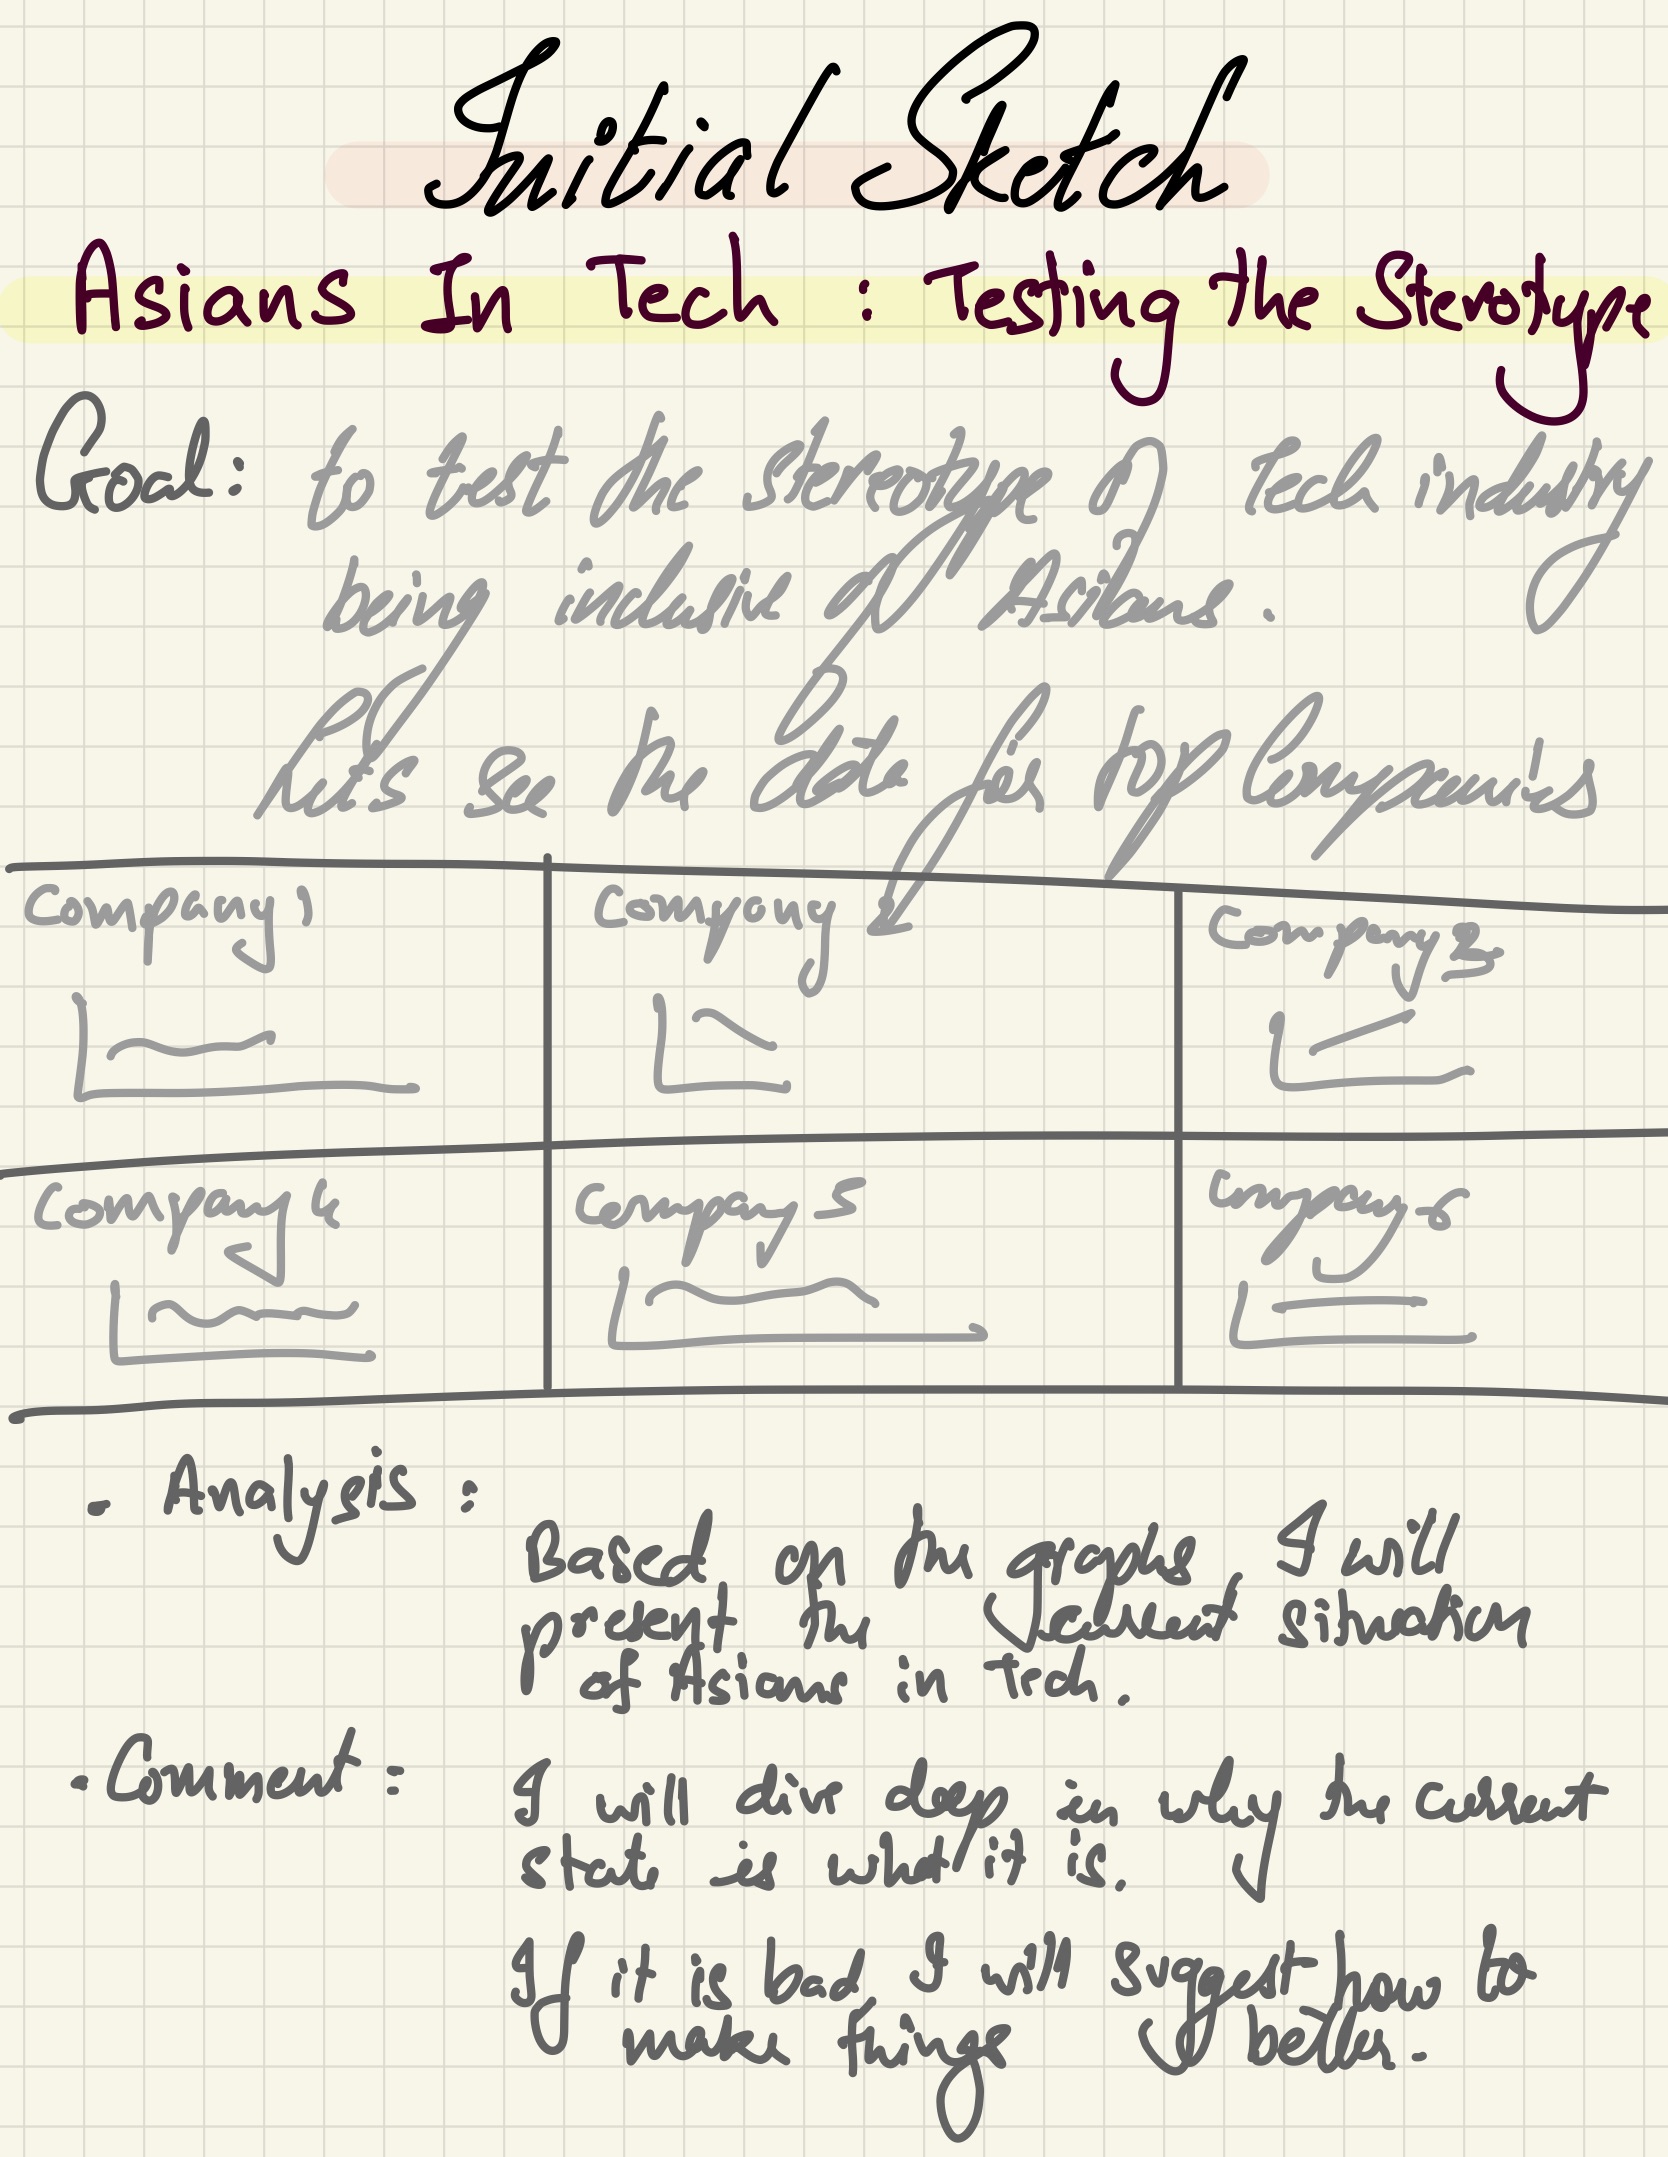 Initial Sketch
Asians In Tech : Testing the Sterotype
Goal: to test the stereotype of Tech industry
being inclusive of Asians.
Let's see the data for top Companies
Company 1
Company 2
Company 3
Company 4
Company 5
Company 6
. Analysis :
Based on the graphs I will
present the current situation
of Asians in Tech.
. Comment :
I will dive deep in why the current
state is what it is.
If it is bad I will suggest how to
make things better.